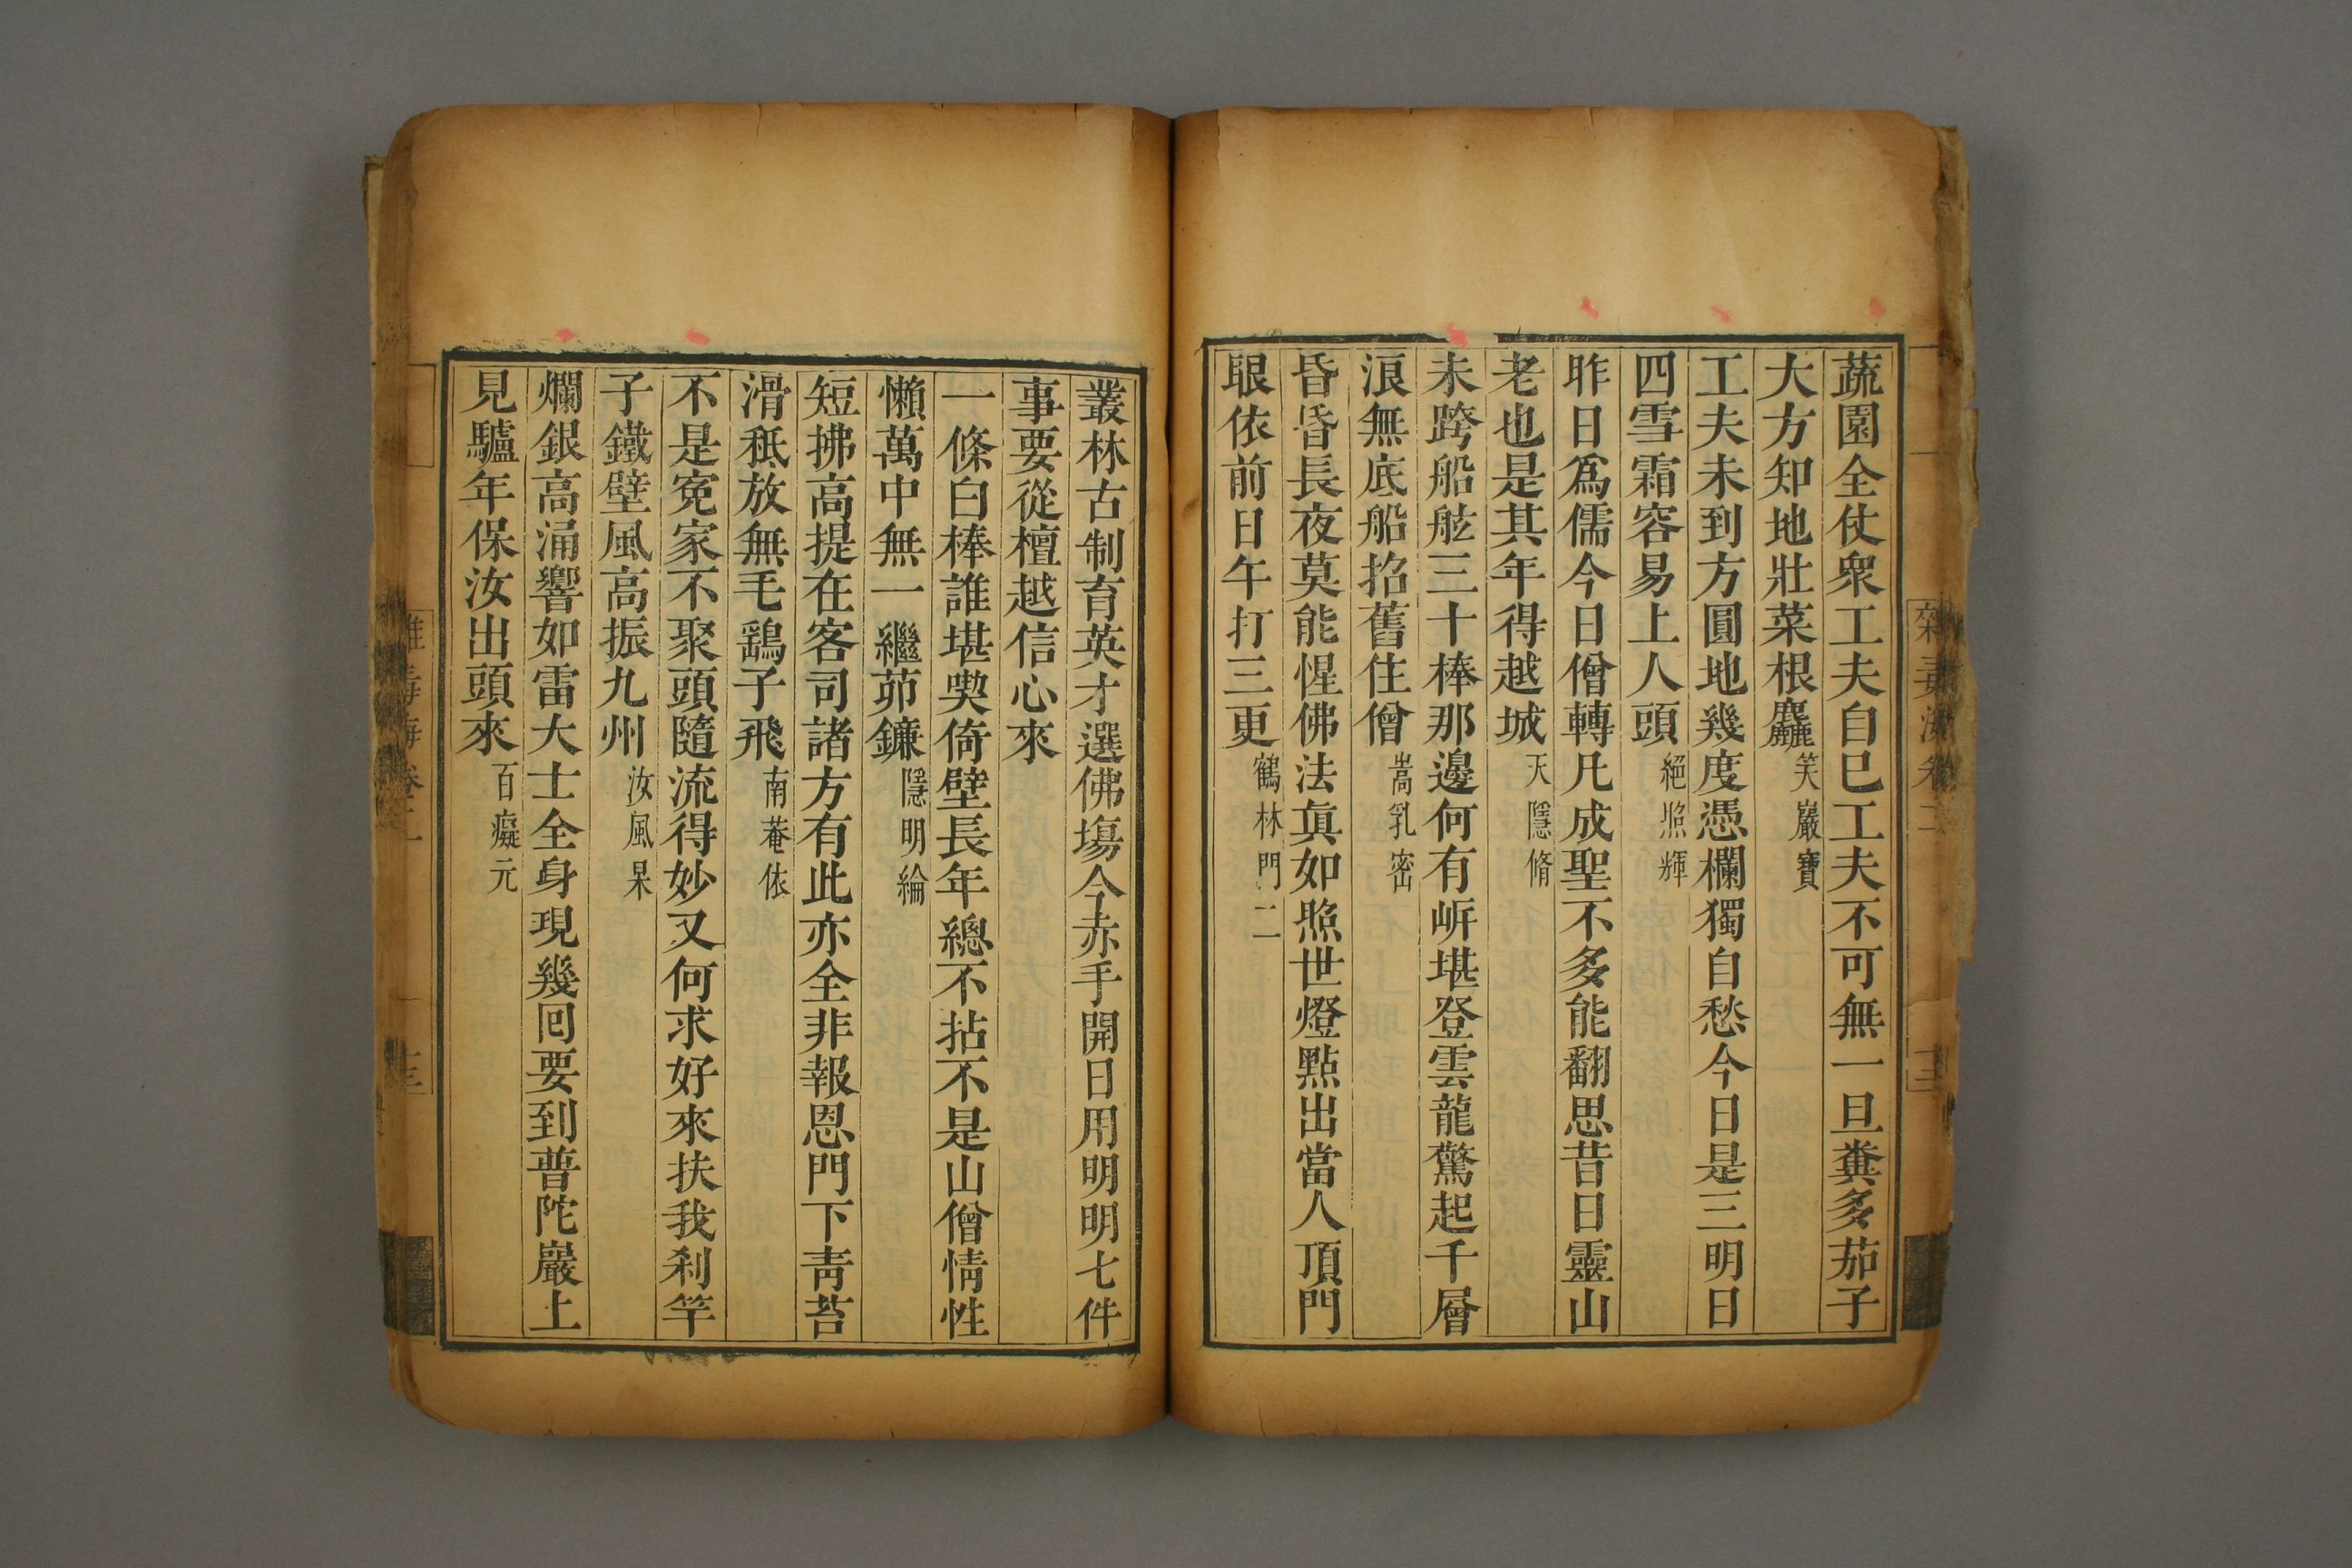 蔬園全仗衆工夫自巳工夫不可無一旦糞多茄子
大方知地壯菜根麤笑巖寶
工夫未到方圓地幾度憑欄獨自愁今日是三明日
四雪霜容易上人頭絕照輝
昨日爲儒今日僧轉凡成聖不多能翻思昔日靈山
老也是其年得越城天隱脩
未跨船舷三十棒那邊何有㟁堪登雲龍驚起千層
浪無底船招舊住僧嵩乳密
昏昏長夜莫能惺佛法眞如照世燈點出當人頂門
眼依前日午打三更鶴林門二
叢林古制育英才選佛塲今赤手開日用明明七件
事要從檀越信心來
一條白棒誰堪喫倚壁長年總不拈不是山僧情性
懶萬中無一繼茆鐮隱明綸
短拂高提在客司諸方有此亦全非報恩門下靑苔
滑秪放無毛鷂子飛南菴依
不是寃家不聚頭隨流得妙又何求好來扶我刹竿
子鐵壁風高振九州汝風杲
爛銀高涌響如雷大士全身現幾囘要到普陀巖上
見驢年保汝出頭來百癡元